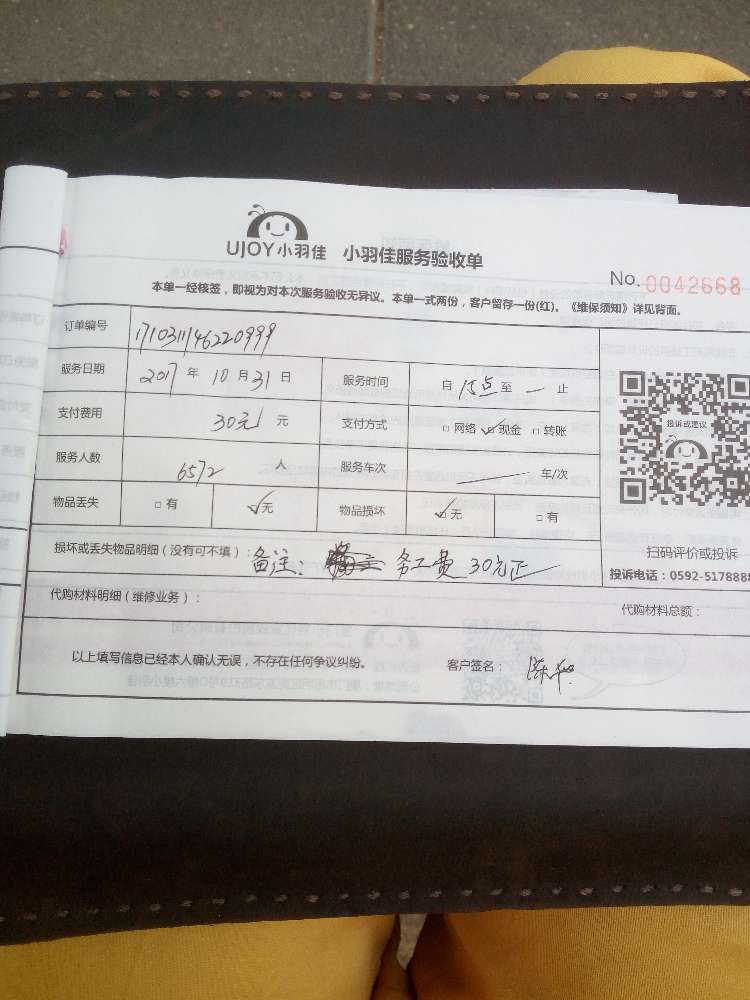 UJOY小羽佳 小羽佳服务验收单
No. 0042668
本单一经核签，即视为对本次服务验收无异议。本单一式两份，客户留存一份(红)。《维保须知》详见背面。
订单编号 171031146220999
服务日期 2017 年 10 月 31 日 服务时间 自 15点 至 一 止
支付费用 30元 元 支付方式 □网络 ☑现金 □转账
投诉或建议
服务人数 6572 人 服务车次 一 车/次
物品丢失 □有 ☑无 物品损坏 ☑无 □有
损坏或丢失物品明细（没有可不填）： 备注： 务工费 30元正
扫码评价或投诉
投诉电话：0592-5178888
代购材料明细（维修业务）： 代购材料总额：
以上填写信息已经本人确认无误，不存在任何争议纠纷。 客户签名： 陈